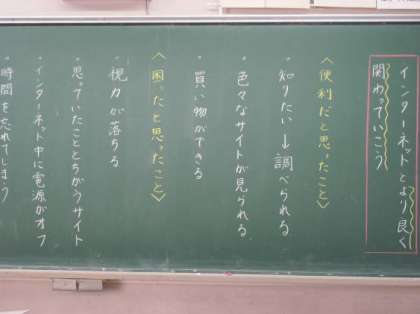 インターネットとより良く
関わっていこう
〈便利だと思ったこと〉
・知りたい→調べられる
・色々なサイトが見られる
・買い物ができる
〈困ったと思ったこと〉
・視力が落ちる
・思っていたこととちがうサイト
・インターネット中に電源がオフ
・時間を忘れてしまう